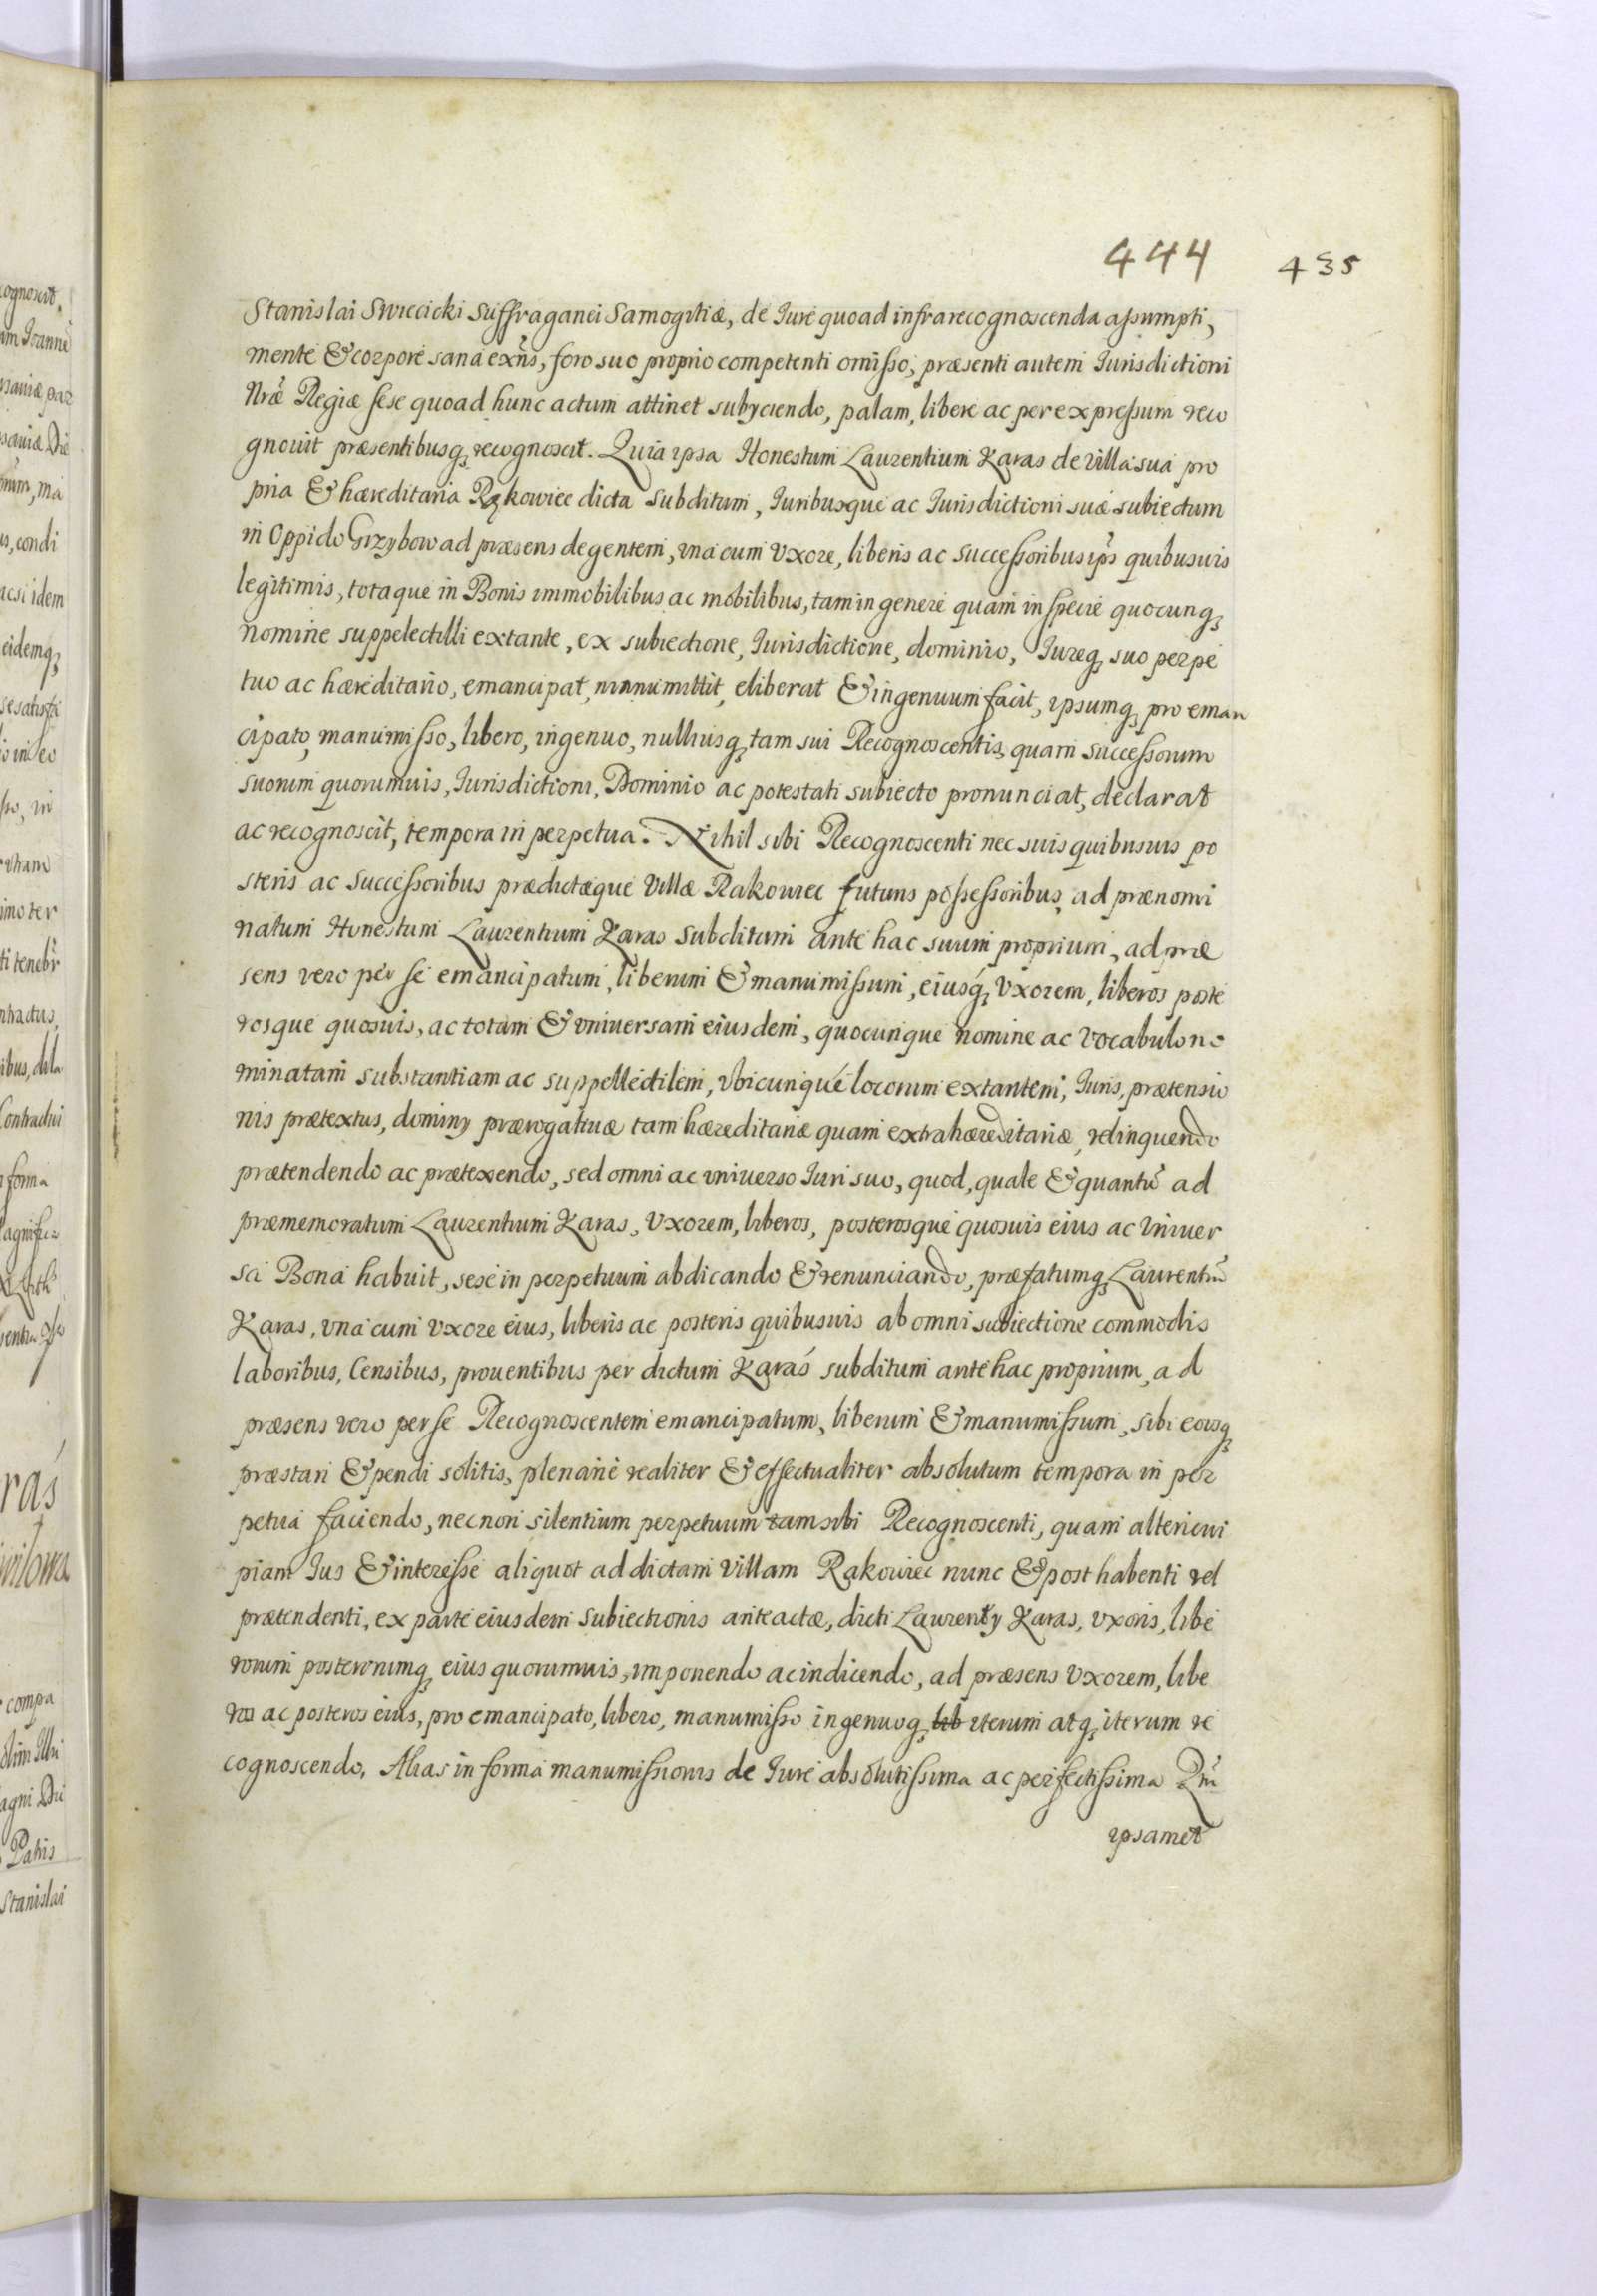 444 435
Stanislai Swiecicki Suffraganei Samogitiæ, de Jure quoad infrarecognoscenda assumpti,
mente & corpore sana exñs, foro suo proprio competenti omisso, præsenti autem Jurisdictioni
Nræ Regiæ sese quoad hunc actum attinet subyciendo, palam, libere ac per expressum reco
gnouit præsentibusq; recognoscit. Quia ipsa Honestum Laurentium Karas de Villa sua pro
pria & hæreditaria Rakowiec dicta subditum, Juribusque ac Jurisdictioni suæ subiectum
in Oppido Grzybow ad præsens degentem, vna cum Vxore, liberis ac successoribus ips quibusuis
legitimis, totaque in Bonis immobilibus ac mobilibus, tam in genere quam in specie quocunq;
nomine suppelectilli extante, ex subiectione, Jurisdictione, dominio, Jureq; suo perpe
tuo ac hæreditario, emancipat, manumittit, eliberat & ingenuum facit, ipsumq; pro eman
cipato, manumisso, libero, ingenuo, nulliusq; tam sui Recognoscentis, quam successorum
suorum quorumuis, Jurisdictioni, Dominio ac potestati subiecto pronunciat, declarat
ac recognoscit, tempora in perpetua. Nihil sibi Recognoscenti nec suis quibusuis po
steris ac successoribus prædictæque Villæ Rakowiec futuris possessoribus, ad prænomi
natum Honestum Laurentium Karas subditum ante hac suum proprium, ad præ
sens vero per se emancipatum, liberum & manumissum, eiusq; Vxorem, liberos poste
rosque quosuis, ac totam & vniuersam eiusdem, quocunque nomine ac vocabulo no
minatam substantiam ac suppellectilem, vbicunque locorum extantem, Juris, prætensio
nis prætextus, dominy prærogatiuæ tam hæreditariæ quam extrahæreditariæ, relinquendo
prætendendo ac prætexendo, sed omni ac vniuerso Juri suo, quod, quale & quantũ ad
præmemoratum Laurentium Karas, Vxorem, liberos, posterosque quosuis eius ac Vniuer
sa Bona habuit, sese in perpetuum abdicando & renunciando, præfatumq; Laurentiũ
Karas, vna cum vxore eius, liberis ac posteris quibusuis ab omni subiectione commodis
laboribus, Censibus, prouentibus per dictum Karas subditum ante hac proprium, ad
præsens vero per se Recognoscentem emancipatum, liberum & manumissum, sibi eousq;
præstari & pendi solitis, plenarie realiter & effectualiter absolutum tempora in per
petua faciendo, necnon silentium perpetuum tam sibi Recognoscenti, quam altericui
piam Jus & interesse aliquot ad dictam Villam Rakowiec nunc & post habenti vel
prætendenti, ex parte eiusdem subiectionis anteactæ, dicti Laurenty Karas, vxoris, libe
rorum posterorumq; eius quorumuis, imponendo ac indicendo, ad præsens Vxorem, libe
ros ac posteros eius, pro emancipato, libero, manumisso ingenuoq; lib iterum atq; iterum re
cognoscendo, Alias in forma manumissionis de Jure absolutissima ac perfectissima Qm̃
ipsamet